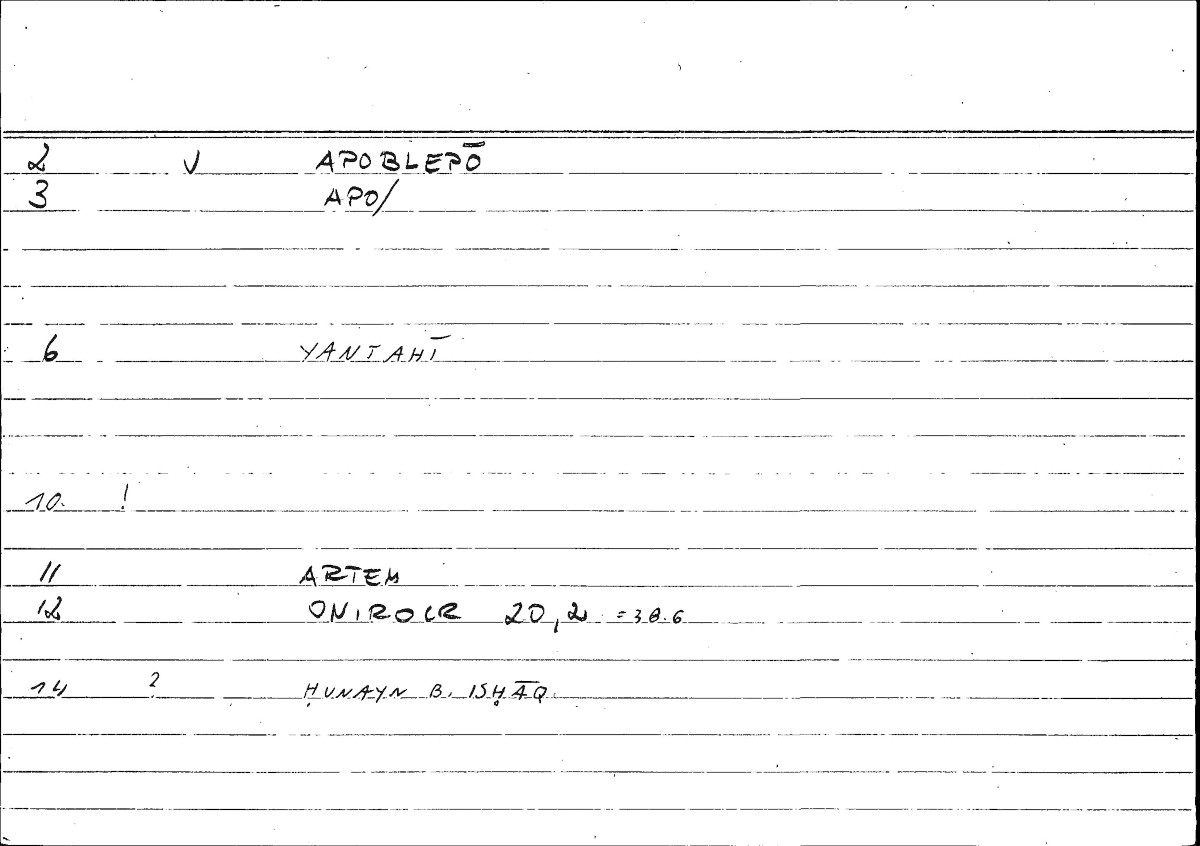 2 V APOBLEPŌ
3 APO/
6 YANTAHĪ
10. !
11 ARTEM
12 ONIROCR 20,2 =38.6
14 ? ḤUNAYN B. ISḤĀQ